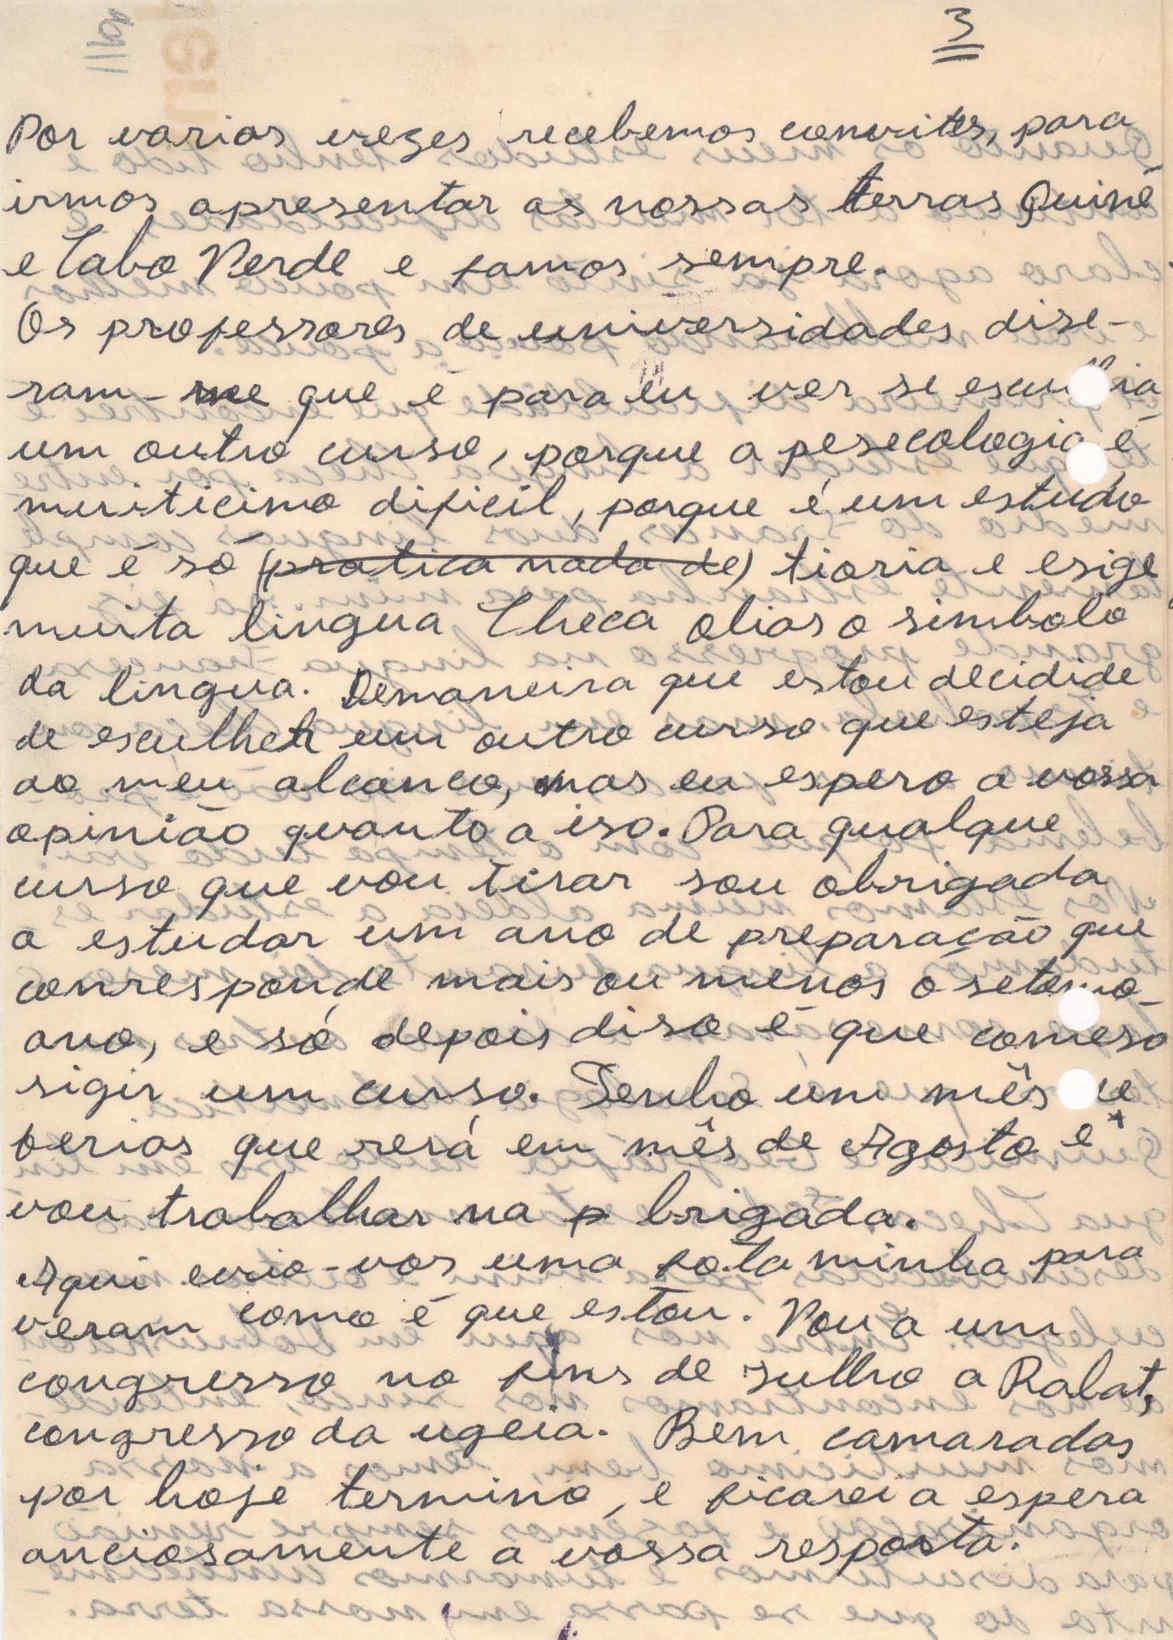 3
Por varias vezes recebemos convites, para
irmos apresentar as nossas terras Guiné
e Cabo Verde e famos sempre.
Os professores de universidades dise-
ram-me que é para eu ver se escu ia
um outro curso, porque a pesecologia é
muiticimo dificil, porque é um estudo
que é só (pratica nada de) tioria e esige
muita lingua Checa alias o simbolo
da lingua. Demaneira que estou decidide
de esculher um outro curso que esteja
ao meu alcance, mas eu espero a vossa
opinião quanto a iso. Para qualque
curso que vou tirar sou obrigada
a estudar um ano de preparação que
conresponde mais ou menos o setemo
ano, e só depois diso é que comeso
sigir um curso. Tenho um mês e
ferias que será em mês de Agosto e
vou trabalhar na p brigada.
Aqui evio-vos uma fota minha para
veram como é que estou. Vou a um
congresso no fins de Julho a Rabat,
congresso da ugeia. Bem camaradas
por hoje termino, e ficarei a espera
anciosamente a vossa resposta.